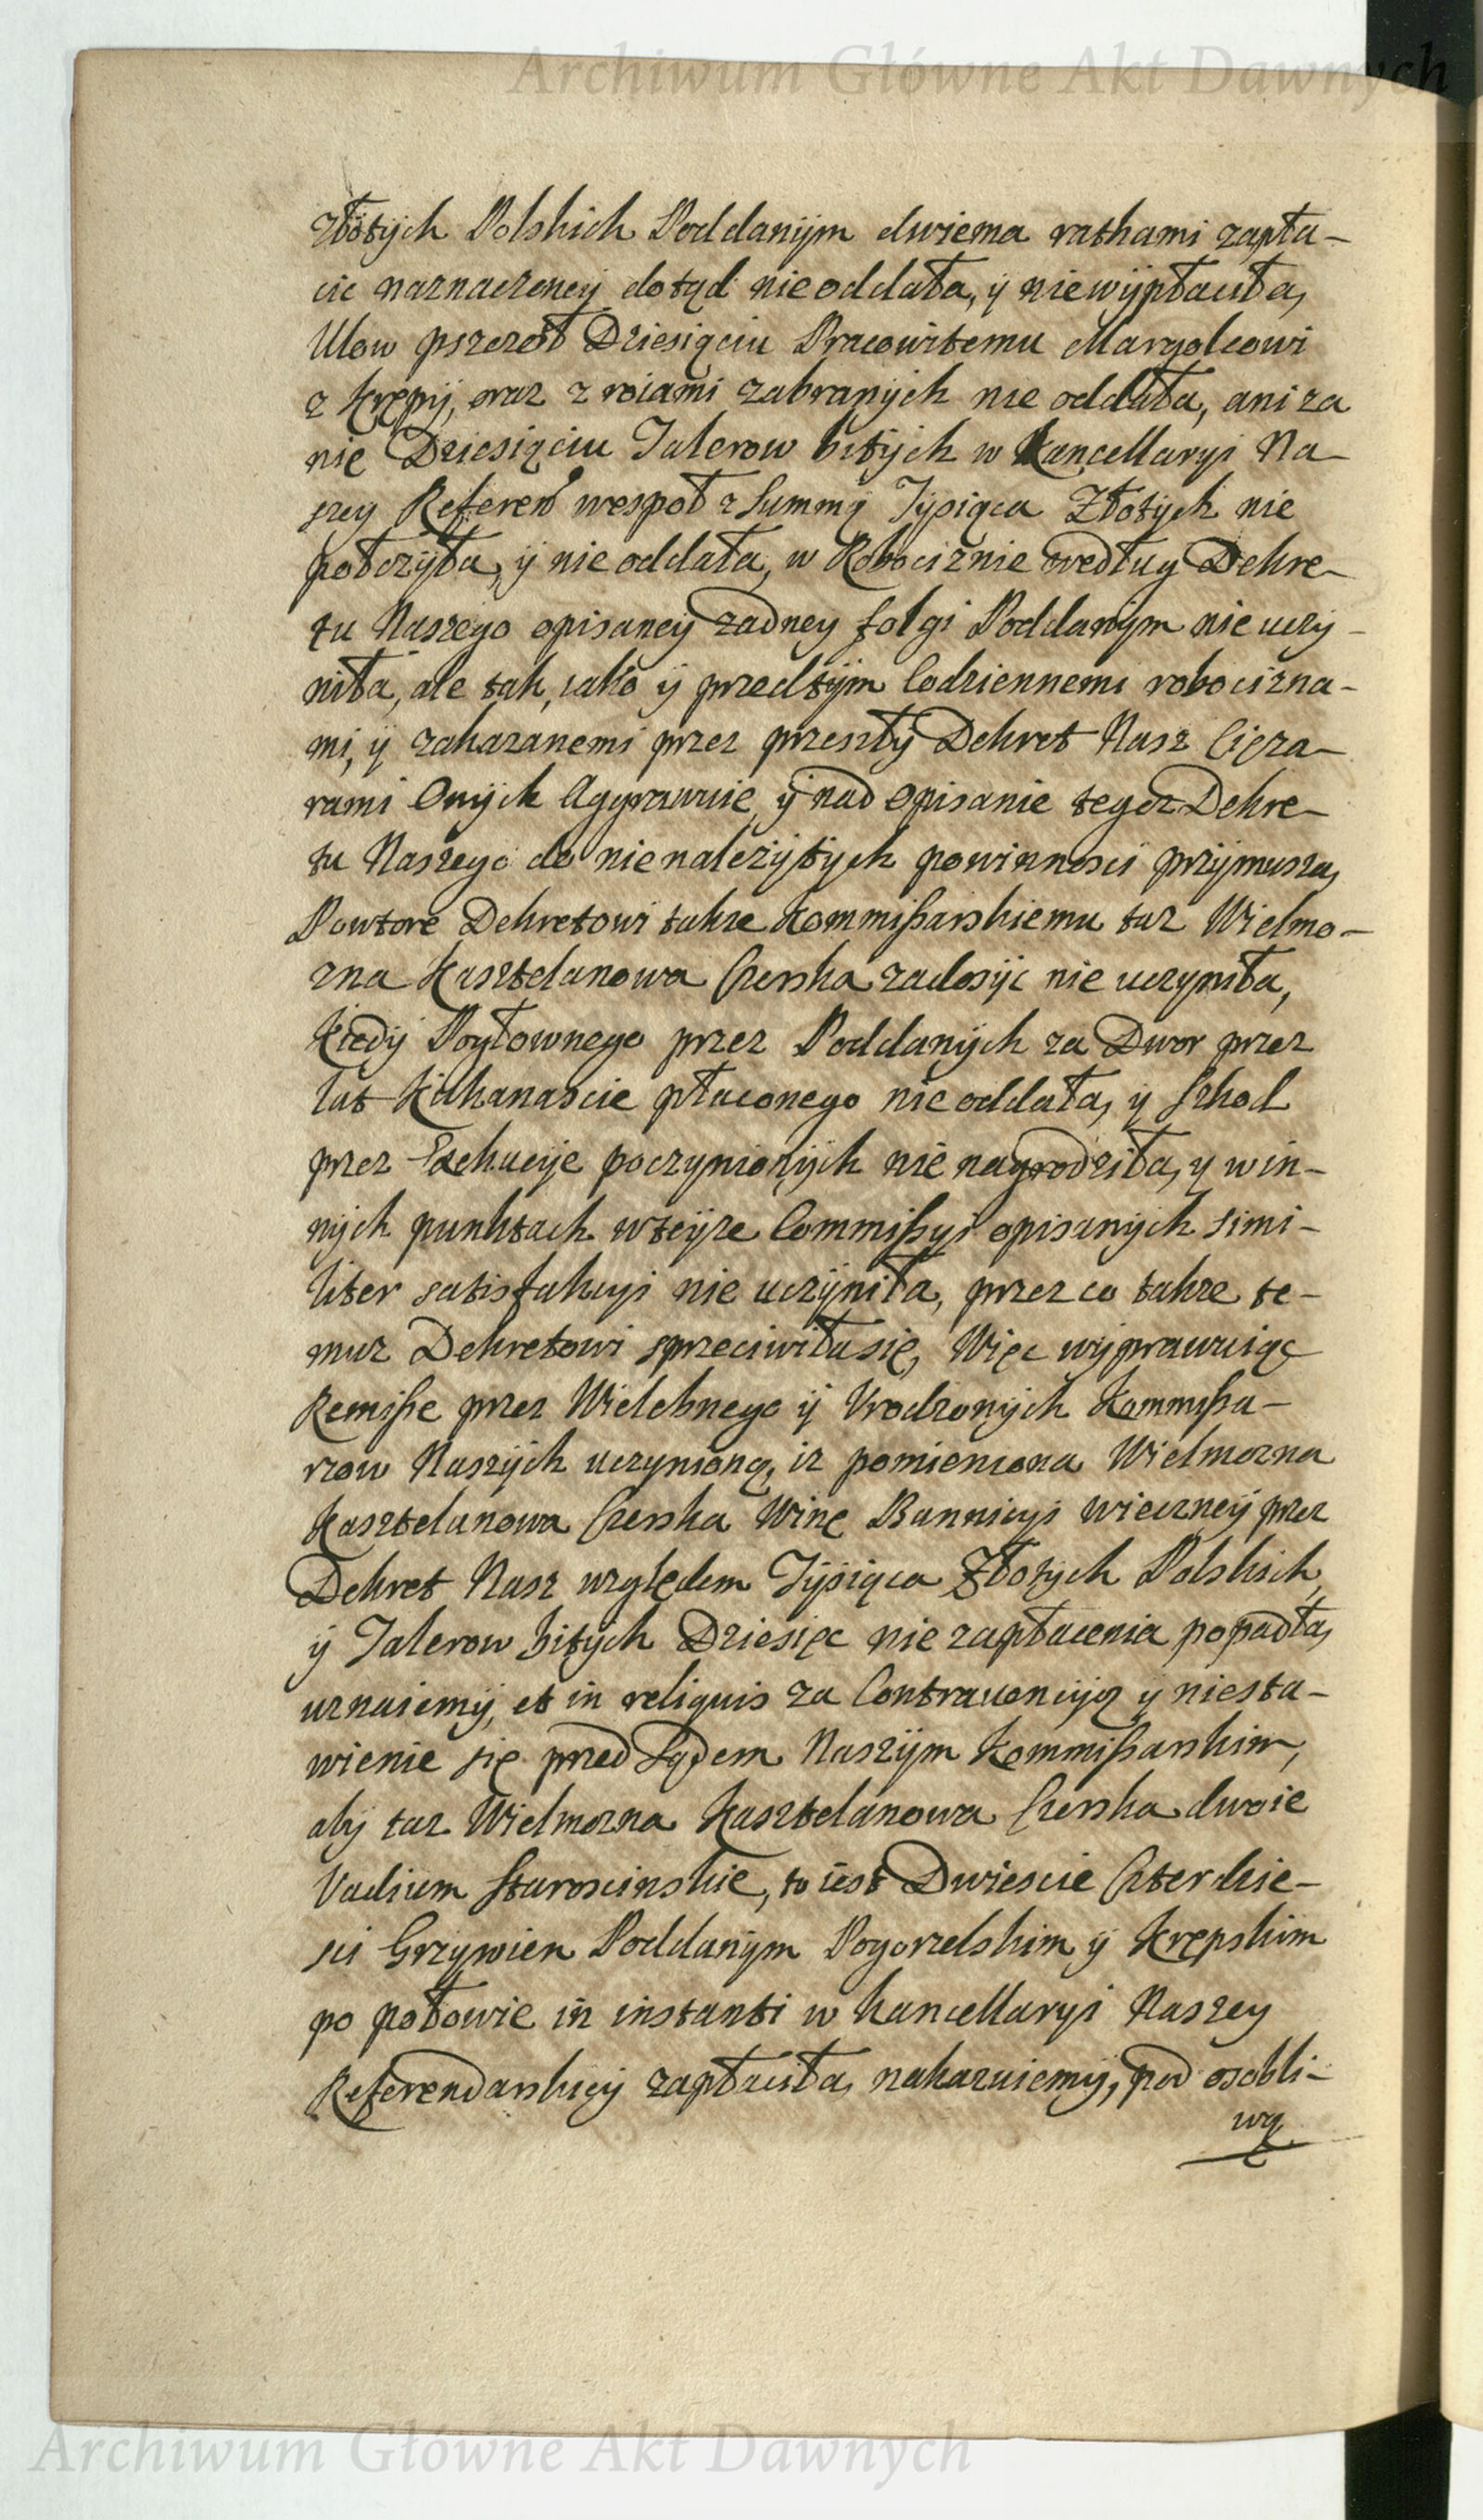 Archiwum Główne Akt Dawnych
złotÿch Polskich Poddanÿm dwiema rathami zapła-
cic naznaczoneÿ dotąd nieoddała, ÿ niewÿpłaciła,
Ulow pszczoł Dziesięciu Pracowitemu Margolcowi
z Krępÿ, oraz z roiami zabranÿch nie oddała, ani za
nię Dziesięciu Talerow bitÿch w Kancellaryi Na-
szey Referen wespoł z Summą Tÿsiąca Złotÿch nie
połozÿła, ÿ nie oddała, w Robociznie według Dekre-
tu Naszego opisaneÿ zadney folgi Poddanÿm nie uczy-
niła, ale tak, iako ÿ przedtÿm Codziennemi robocizna-
mi, ÿ zakazanemi przez przeszłÿ Dekret Nasz Cięza-
rami Onÿch Aggrawuie, ÿ nad Opisanie tegoz Dekre-
tu Naszego do nienalezÿtÿch powinnosci przÿmusza,
Powtore Dekretowi takze Kommißarskiemu taz Wielmo-
zna Kasztelanowa Czerska zadosÿc nie uczyniła,
Kiedÿ Pogłownego przez Poddanÿch za Dwor przez
lat Kilkanascie płaconego nieoddała, ÿ Szkod
przez Exekucÿe poczynionÿch nie nagrodziła, y win-
nÿch punktach wteÿze Commißyi opisanÿch simi-
liter satisfakcyi nie uczÿniła, przez co takze te-
muz Dekretowi sprzeciwiła się, Więc wÿprawuiąc
Remiße przez Wielebnego ÿ Vrodzonÿch Kommißa-
rzow Naszÿch uczynioną, iz pomieniona Wielmozna
Kasztelanowa Czerska Winę Bannicyi wieczneÿ przez
Dekret Nasz względem Tÿsiąca Złotÿch Polskich,
ÿ Talerow bitÿch Dziesięc nie zapłacenia popadła,
uznaiemÿ, et in reliquis za Contrauencÿą ÿ niesta-
wienie się przed Sądem Naszÿm Kommißarskim,
abÿ taz Wielmozna Kasztelanowa Czerska dwoie
Vadium Staroscinskie, to iest Dwiescie Czterdzie-
sci Grzywien Poddanÿm Pogorzelskim ÿ Krępskim
po połowie in instanti w Kancellaryi Naszey
Referendarskieÿ zapłaciła, nakazuiemÿ, pod osobli-
wą
Archiwum Główne Akt Dawnych